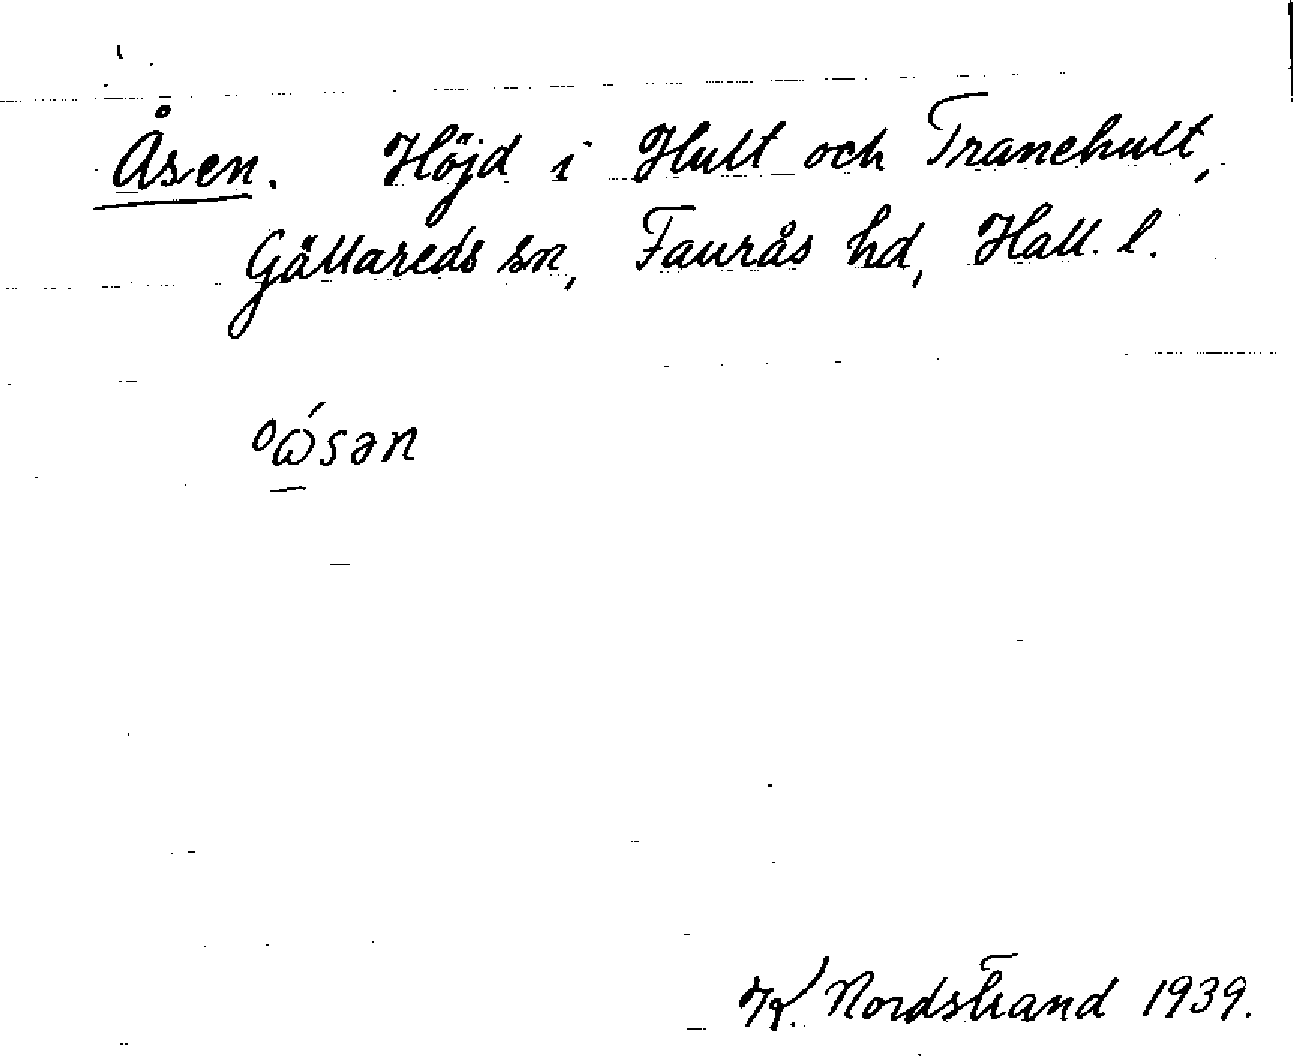 Åsen. Höjd i Hult och Tranehult,
Gällareds sn, Faurås hd, Hall. l.
K. Nordstrand 1939.